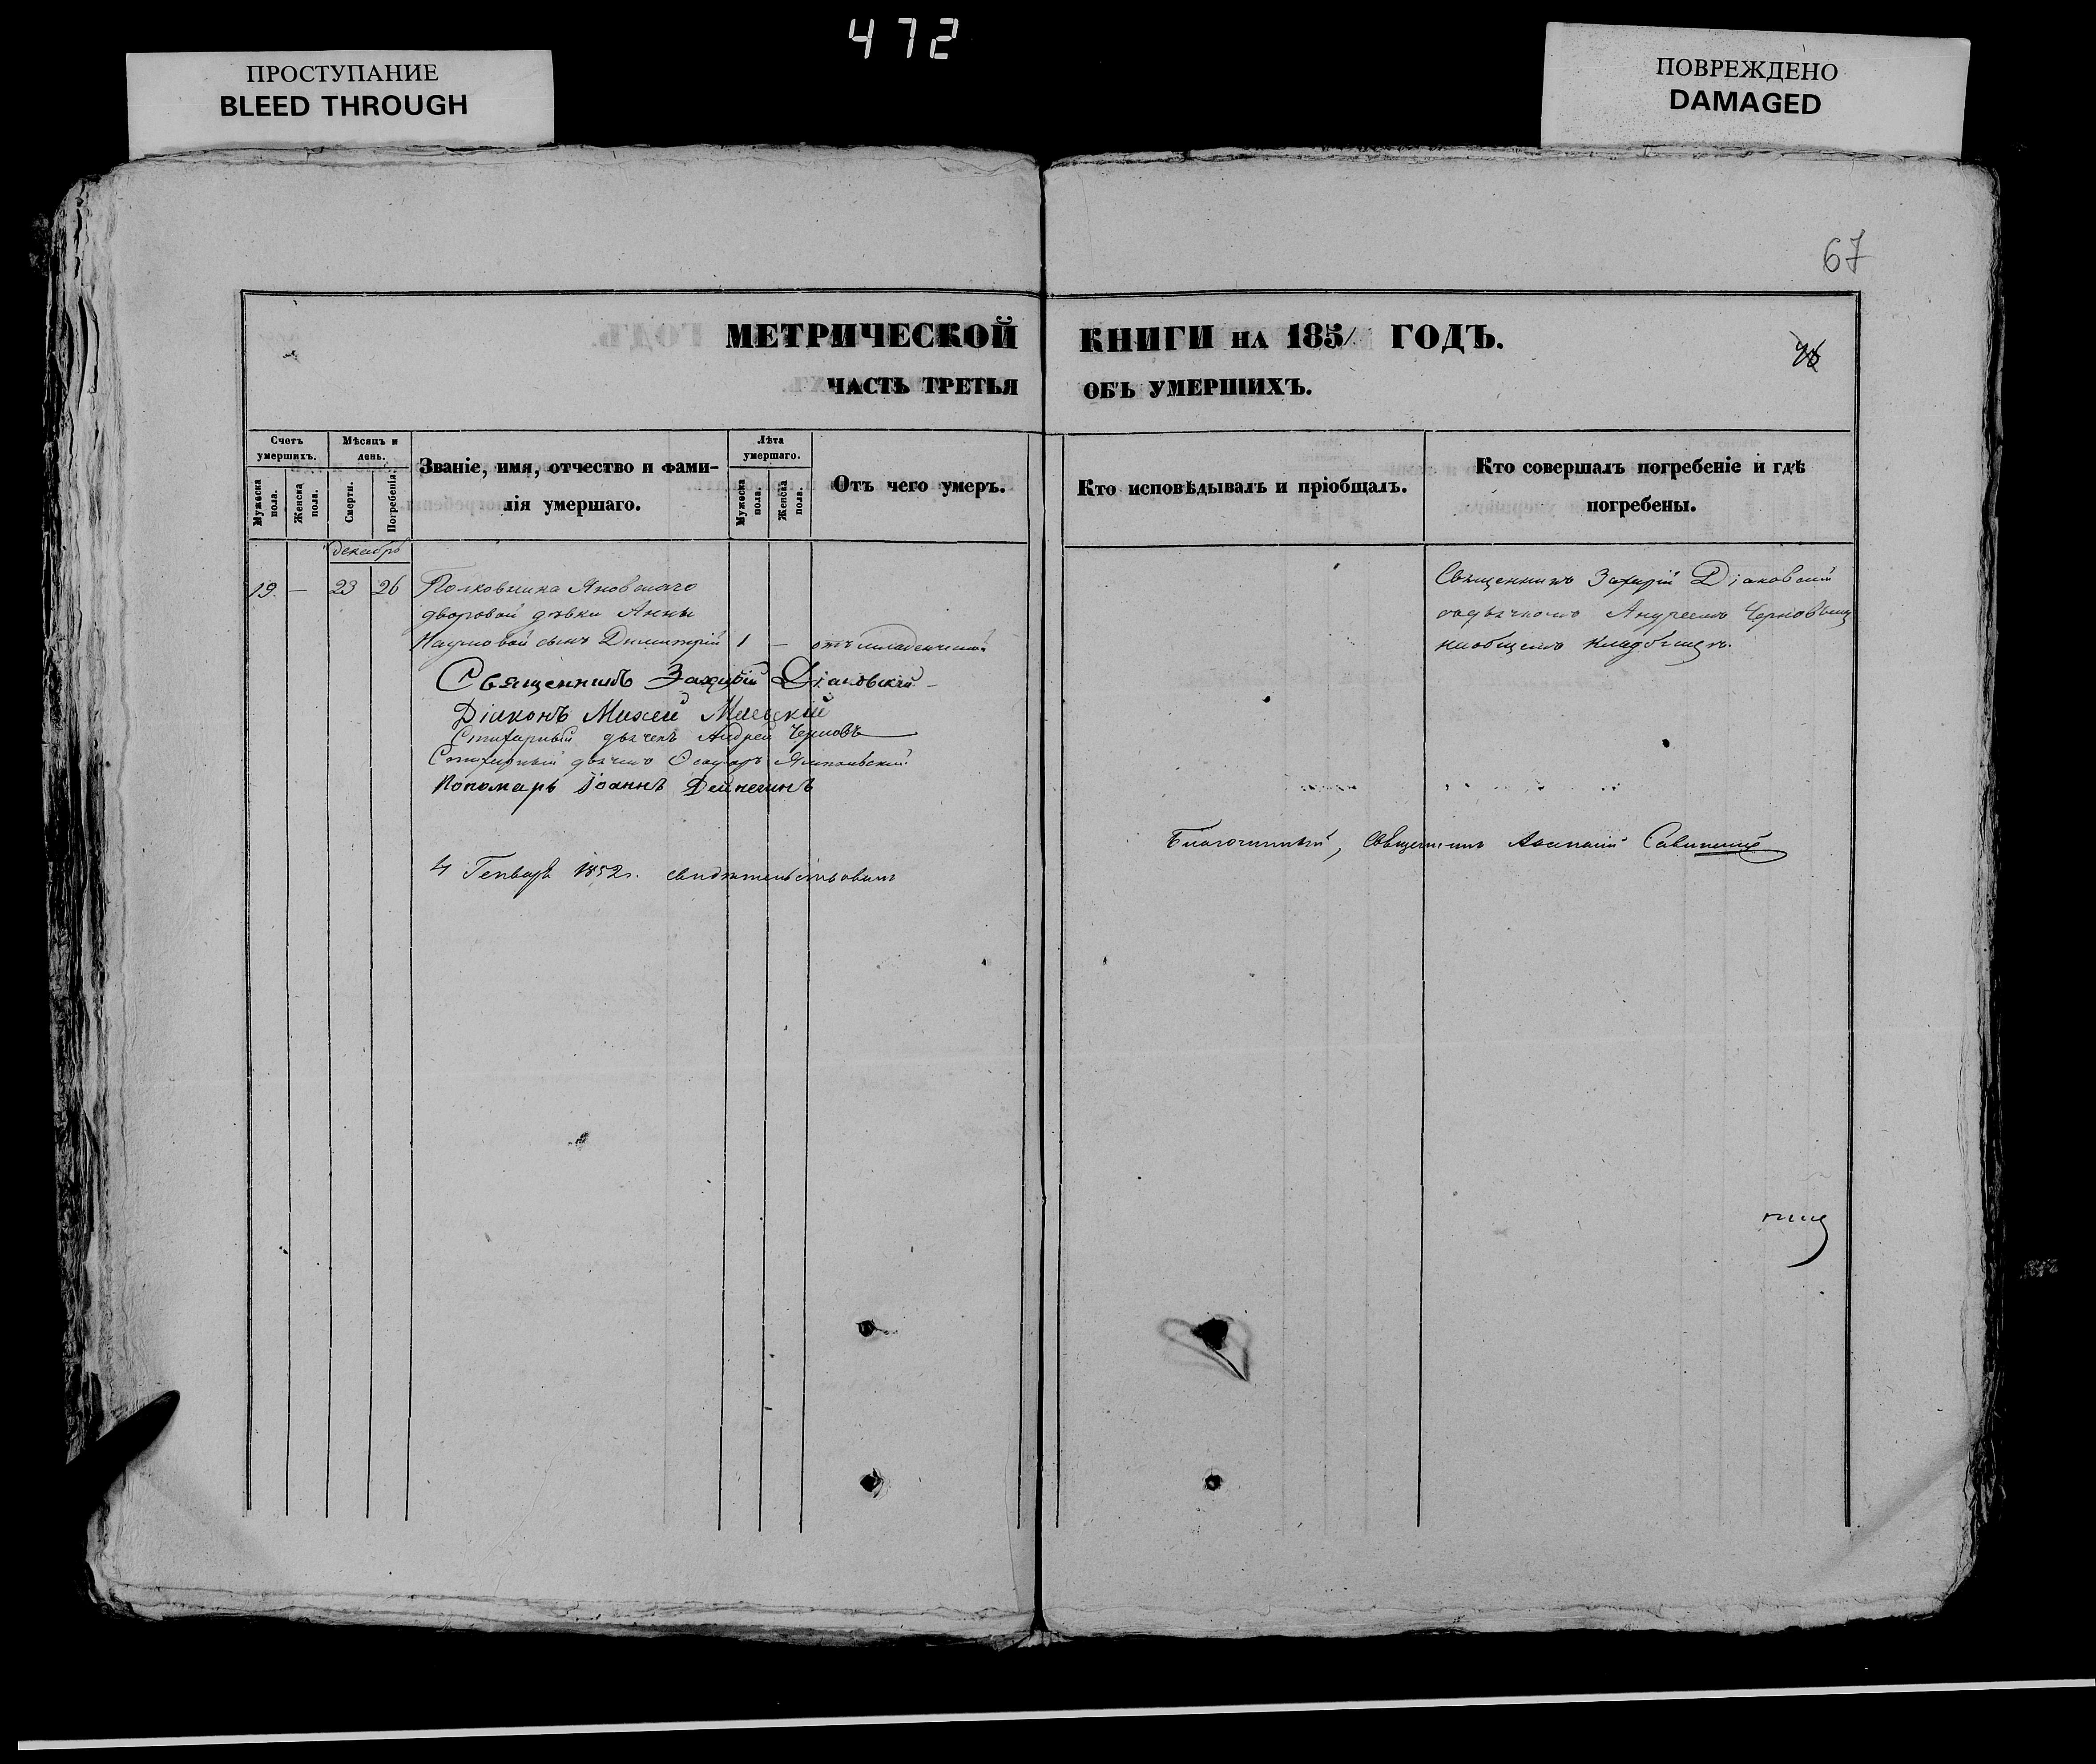 472
ПРОСТУПАНИЕ
BLEED THROUGH
ПОВРЕЖДЕНО
DAMAGED
67
МЕТРИЧЕСКОЙ КНИГИ НА 1851 ГОДЪ.
ЧАСТЬ ТРЕТЬЯ ОБЪ УМЕРШИХЪ.
Счетъ умершихъ.
Мужеска пола.
Женска пола.
Мѣсяцъ и день.
Смерти.
Погребенія.
Званіе, имя, отчество и фами-
лія умершаго.
Лѣта умершаго.
Мужеска пола.
Женска пола.
Отъ чего умеръ.
Кто исповѣдывалъ и пріобщалъ.
Кто совершалъ погребеніе и гдѣ
погребены.
декабрь
19. — 23 26 Полковника Яновскаго
дворовой дѣвки Анны
Наумовой сынъ Димитрій 1 — отъ младенческой
Священникъ Захарій Діаковскій
съ дьячкомъ Андреемъ Черновымъ
на общемъ кладбищѣ.
Священникъ Захарій Діаковскій
Діаконъ Михей Маевскій
Стихарный дьячекъ Андрей Черновъ
Стихарный дьячекъ
Пономарь Іоаннъ
4 Генваря 1852 г. свидѣтельствовалъ
Благочинный, Священникъ